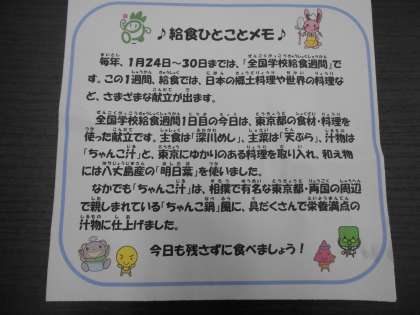 ♪給食ひとことメモ♪
毎年、1月24日～30日までは、「全国学校給食週間」で
す。この1週間、給食では、日本の郷土料理や世界の料理な
ど、さまざまな献立が出ます。
全国学校給食週間1日目の今日は、東京都の食材・料理を
使った献立です。主食は「深川めし」、主菜は「天ぷら」、汁物は
「ちゃんこ汁」と、東京にゆかりのある料理を取り入れ、和え物
には八丈島産の「明日葉」を使いました。
なかでも「ちゃんこ汁」は、相撲で有名な東京都・両国の周辺
で親しまれている「ちゃんこ鍋」風に、具だくさんで栄養満点の
汁物に仕上げました。
今日も残さずに食べましょう！